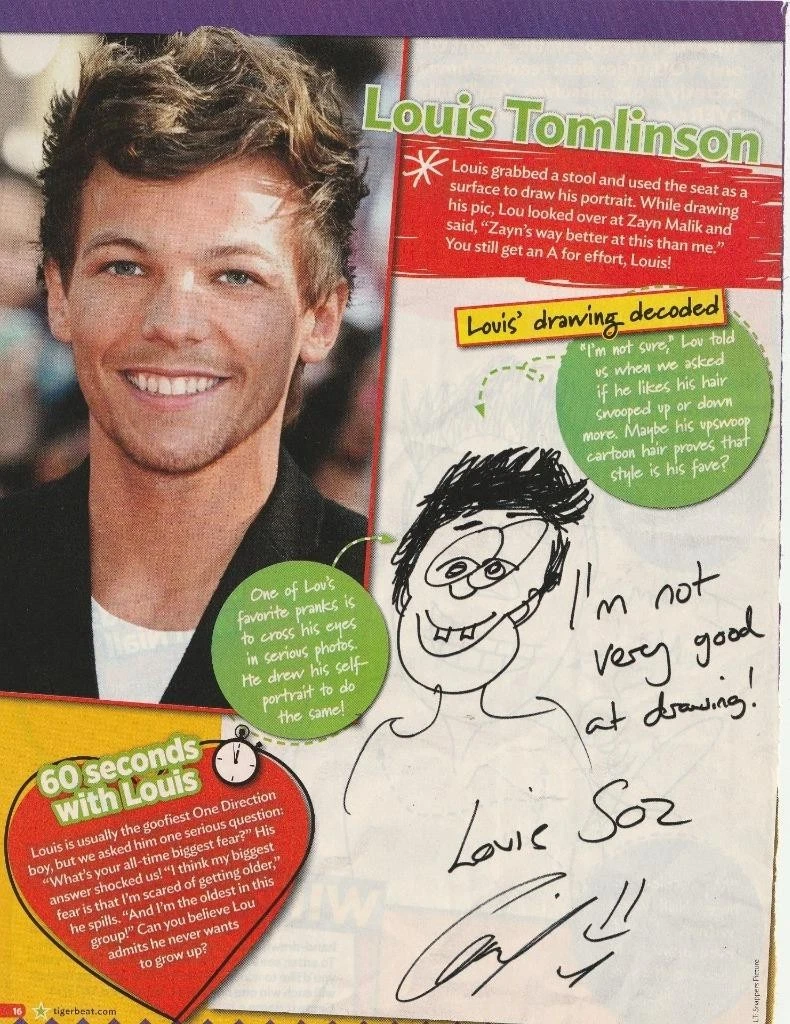 Louis Tomlinson
Louis grabbed a stool and used the seat as a
surface to draw his portrait. While drawing
his pic, Lou looked over at Zayn Malik and
said, “Zayn's way better at this than me.”
You still get an A for effort, Louis!
Louis' drawing decoded
"I'm not sure," Lou told
us when we asked
if he likes his hair
swooped up or down
more. Maybe his upswoop
cartoon hair proves that
style is his fave?
One of Lou's
favorite pranks is
to cross his eyes
in serious photos.
He drew his self-
portrait to do
the same!
I'm not
very good
at drawing!
Louis Soz
60 seconds
with Louis
Louis is usually the goofiest One Direction
boy, but we asked him one serious question:
“What's your all-time biggest fear?” His
answer shocked us! “I think my biggest
fear is that I'm scared of getting older,”
he spills. “And I'm the oldest in this
group!” Can you believe Lou
admits he never wants
to grow up?
16 tigerbeat.com